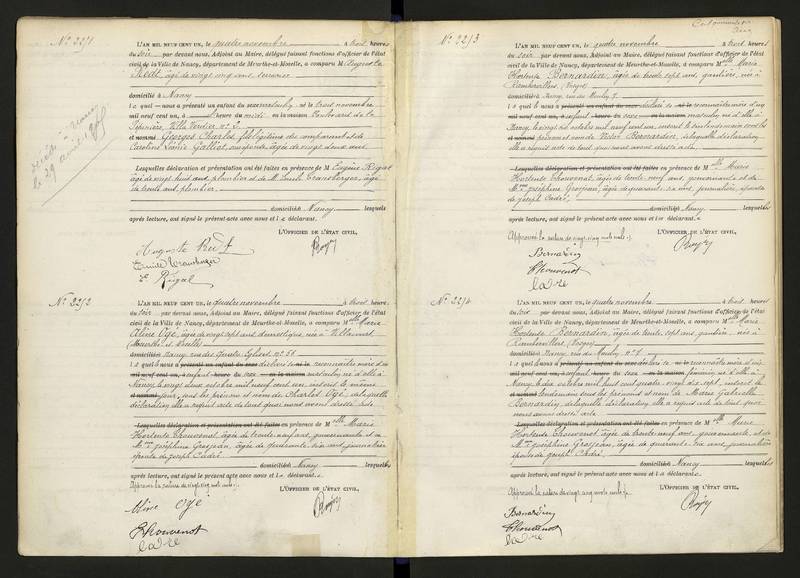 N° 2271
L'AN MIL NEUF CENT UN, le quatre novembre à trois heures
du soir par devant nous, Adjoint au Maire, délégué faisant fonctions d'officier de l'état
civil de la Ville de Nancy, département de Meurthe-et-Moselle, a comparu M Auguste
âgé de vingt cinq ans
domicilié à Nancy
lequel nous a présenté un enfant du sexe masculin, né le trois novembre
mil neuf cent un, à heures du midi en la maison Boulevard de la
Pépinière, Villa Verdier n° 3
et nommé Georges Charles, fils légitime du comparant et de
Caroline Galliot, son épouse, âgée de vingt deux ans
Lesquelles déclaration et présentation ont été faites en présence de M Eugène Rigal
âgé de vingt huit ans, plombier et de M. Emile Transberger, âgé
de trente ans, plombier
domiciliés Nancy lesquels
après lecture, ont signé le présent acte avec nous et le déclarant.
L'OFFICIER DE L'ÉTAT CIVIL,
Auguste
Emile Transberger
E. Rigal
le 29 avril
N° 2272
L'AN MIL NEUF CENT UN, le quatre novembre à trois heures
du soir par devant nous, Adjoint au Maire, délégué faisant fonctions d'officier de l'état
civil de la Ville de Nancy, département de Meurthe-et-Moselle, a comparu Mlle Marie
Aline Oyé, âgée de vingt sept ans, domestique, née à
(Meurthe et Moselle)
domiciliée Nancy, rue des Quatre Eglises n° 56
laquelle nous a présenté un enfant du sexe déclaré né le reconnaître
mil neuf cent un, à enfant heures du sexe en la maison masculin, né d'elle à
Nancy le vingt deux octobre mil neuf cent un inscrit le même
et nommé jour, sous les prénom et nom de Charles Oyé, de laquelle
déclaration elle a requis acte de tout quoi nous avons dressé acte
Lesquelles déclaration et présentation ont été faites en présence de Mlle Marie
Hortense Thouvenot, âgée de trente neuf ans, gouvernante et de
Mme Joséphine Grosjean, âgée de quarante six ans, journalière
épouse de Joseph Cadré
domiciliés Nancy lesquels
après lecture, ont signé le présent acte avec nous et la déclarante.
Approuvé la rature de vingt cinq mots nuls.
L'OFFICIER DE L'ÉTAT CIVIL,
Aline Oyé
Thouvenot
N° 2273
L'AN MIL NEUF CENT UN, le quatre novembre à trois heures
du soir par devant nous, Adjoint au Maire, délégué faisant fonctions d'officier de l'état
civil de la Ville de Nancy, département de Meurthe-et-Moselle, a comparu Mlle Marie
Hortense Bernardin, âgée de trente sept ans, gantière, née à
Rambervillers (Vosges)
domiciliée Nancy, rue du Moulin 7
laquelle nous a présenté un enfant du sexe déclaré né le reconnaître
mil neuf cent un, à enfant heures du sexe en la maison masculin, né d'elle à
Nancy, le vingt six octobre mil neuf cent un, inscrit le surlendemain sous les
et nommé prénom et nom de Victor Bernardin, de laquelle déclaration
elle a requis acte de tout quoi nous avons dressé acte
Lesquelles déclaration et présentation ont été faites en présence de Mlle Marie
Hortense Thouvenot, âgée de trente neuf ans, gouvernante et de
Mme Joséphine Grosjean, âgée de quarante six ans, journalière, épouse
de Joseph Cadré
domiciliés Nancy lesquels
après lecture, ont signé le présent acte avec nous et la déclarante.
Approuvé la rature de vingt cinq mots nuls.
L'OFFICIER DE L'ÉTAT CIVIL,
Bernardin
Thouvenot
N° 2274
L'AN MIL NEUF CENT UN, le quatre novembre à trois heures
du soir par devant nous, Adjoint au Maire, délégué faisant fonctions d'officier de l'état
civil de la Ville de Nancy, département de Meurthe-et-Moselle, a comparu Mlle Marie
Hortense Bernardin, âgée de trente sept ans, gantière, née à
Rambervillers (Vosges)
domiciliée Nancy, rue du Moulin n° 7
laquelle nous a présenté un enfant du sexe déclaré né le reconnaître
mil neuf cent un, à enfant heures du sexe en la maison féminin, né d'elle à
Nancy le dix octobre mil huit cent quatre vingt dix sept, inscrit le
et nommé lendemain sous les prénoms et nom de Marie Gabrielle
Bernardin, de laquelle déclaration elle a requis acte de tout quoi
nous avons dressé acte
Lesquelles déclaration et présentation ont été faites en présence de Mlle Marie
Hortense Thouvenot, âgée de trente neuf ans, gouvernante, et de
Mme Joséphine Grosjean, âgée de quarante six ans, journalière
épouse de Joseph Cadré
domiciliés Nancy lesquels
après lecture, ont signé le présent acte avec nous et la déclarante.
Approuvé la rature de vingt cinq mots nuls.
L'OFFICIER DE L'ÉTAT CIVIL,
Bernardin
Thouvenot